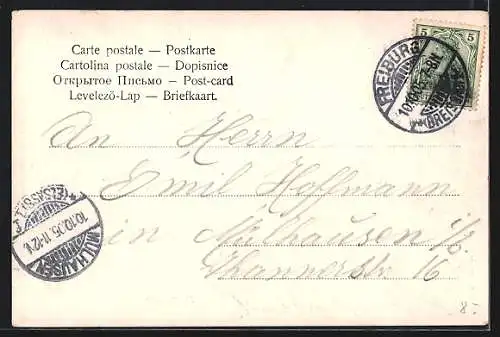 Carte postale — Postkarte
Cartolina postale — Dopisnice
Открытое Письмо — Post-card
Levelező-Lap — Briefkaart.
5 5
FREIBURG
BREISGAU
An Herrn
Emil Hoffmann
in Mülhausen i/E
Thannerstr 16
(ELSASS)
10.10.05. 11-12
MÜLHAUSEN
8.-